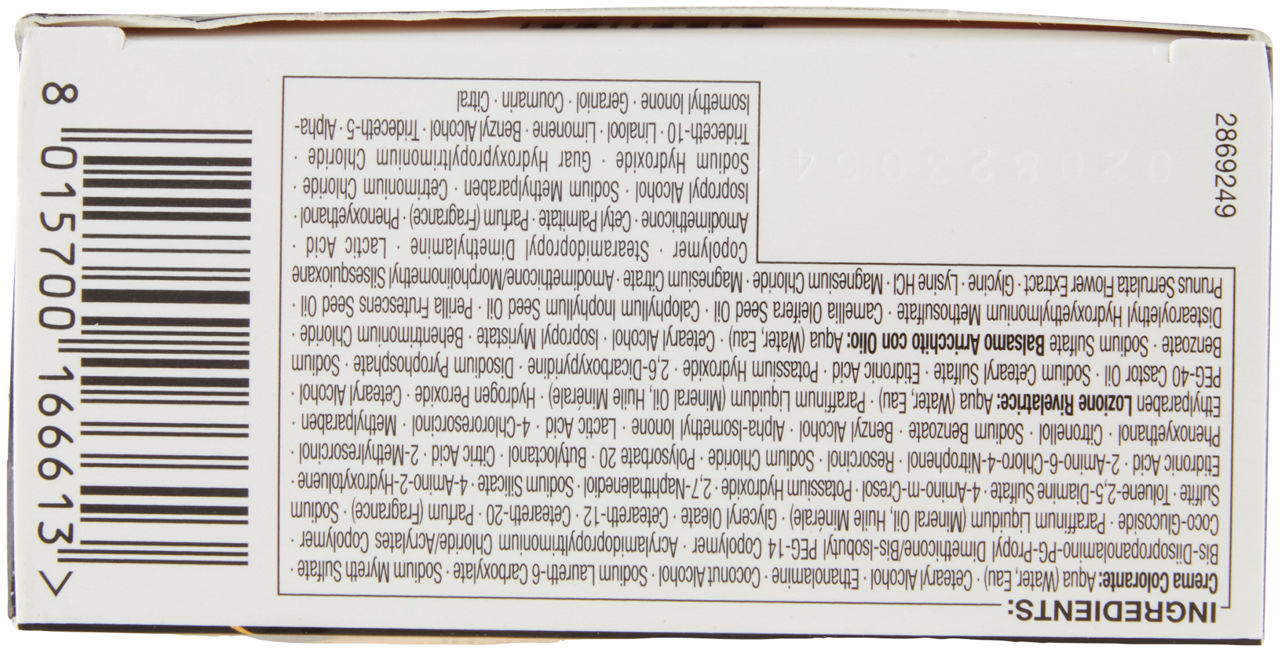 INGREDIENTS:
Crema Colorante: Aqua (Water, Eau) · Cetearyl Alcohol · Ethanolamine · Coconut Alcohol · Sodium Laureth-6 Carboxylate · Sodium Myreth Sulfate ·
Bis-Diisopropanolamino-PG-Propyl Dimethicone/Bis-Isobutyl PEG-14 Copolymer · Acrylamidopropyltrimonium Chloride/Acrylates Copolymer ·
Coco-Glucoside · Paraffinum Liquidum (Mineral Oil, Huile Minérale) · Glyceryl Oleate · Ceteareth-12 · Ceteareth-20 · Parfum (Fragrance) · Sodium
Sulfite · Toluene-2,5-Diamine Sulfate · 4-Amino-m-Cresol · Potassium Hydroxide · 2,7-Naphthalenediol · Sodium Silicate · 4-Amino-2-Hydroxytoluene ·
Etidronic Acid · 2-Amino-6-Chloro-4-Nitrophenol · Resorcinol · Sodium Chloride · Polysorbate 20 · Butyloctanol · Citric Acid · 2-Methylresorcinol ·
Phenoxyethanol · Citronellol · Sodium Benzoate · Benzyl Alcohol · Alpha-Isomethyl Ionone · Lactic Acid · 4-Chlororesorcinol · Methylparaben ·
Ethylparaben Lozione Rivelatrice: Aqua (Water, Eau) · Paraffinum Liquidum (Mineral Oil, Huile Minérale) · Hydrogen Peroxide · Cetearyl Alcohol ·
PEG-40 Castor Oil · Sodium Cetearyl Sulfate · Etidronic Acid · Potassium Hydroxide · 2,6-Dicarboxypyridine · Disodium Pyrophosphate · Sodium
Benzoate · Sodium Sulfate Balsamo Arricchito con Olio: Aqua (Water, Eau) · Cetearyl Alcohol · Isopropyl Myristate · Behentrimonium Chloride ·
Distearoylethyl Hydroxyethylmonium Methosulfate · Camellia Oleifera Seed Oil · Calophyllum Inophyllum Seed Oil · Perilla Frutescens Seed Oil ·
Prunus Serrulata Flower Extract · Glycine · Lysine HCl · Magnesium Chloride · Magnesium Citrate · Amodimethicone/Morpholinomethyl Silsesquioxane
Copolymer · Stearamidopropyl Dimethylamine · Lactic Acid ·
Amodimethicone · Cetyl Palmitate · Parfum (Fragrance) · Phenoxyethanol ·
Isopropyl Alcohol · Sodium Methylparaben · Cetrimonium Chloride ·
Sodium Hydroxide · Guar Hydroxypropyltrimonium Chloride ·
Trideceth-10 · Linalool · Limonene · Benzyl Alcohol · Trideceth-5 · Alpha-
Isomethyl Ionone · Geraniol · Coumarin · Citral
2869249
8 015700 166613 >